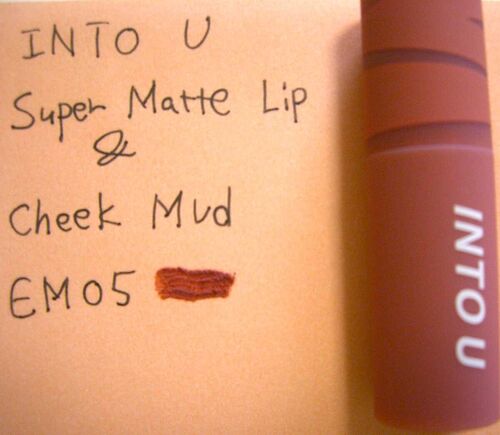 INTO U
Super Matte Lip
&
Cheek Mud
EM05
INTO U